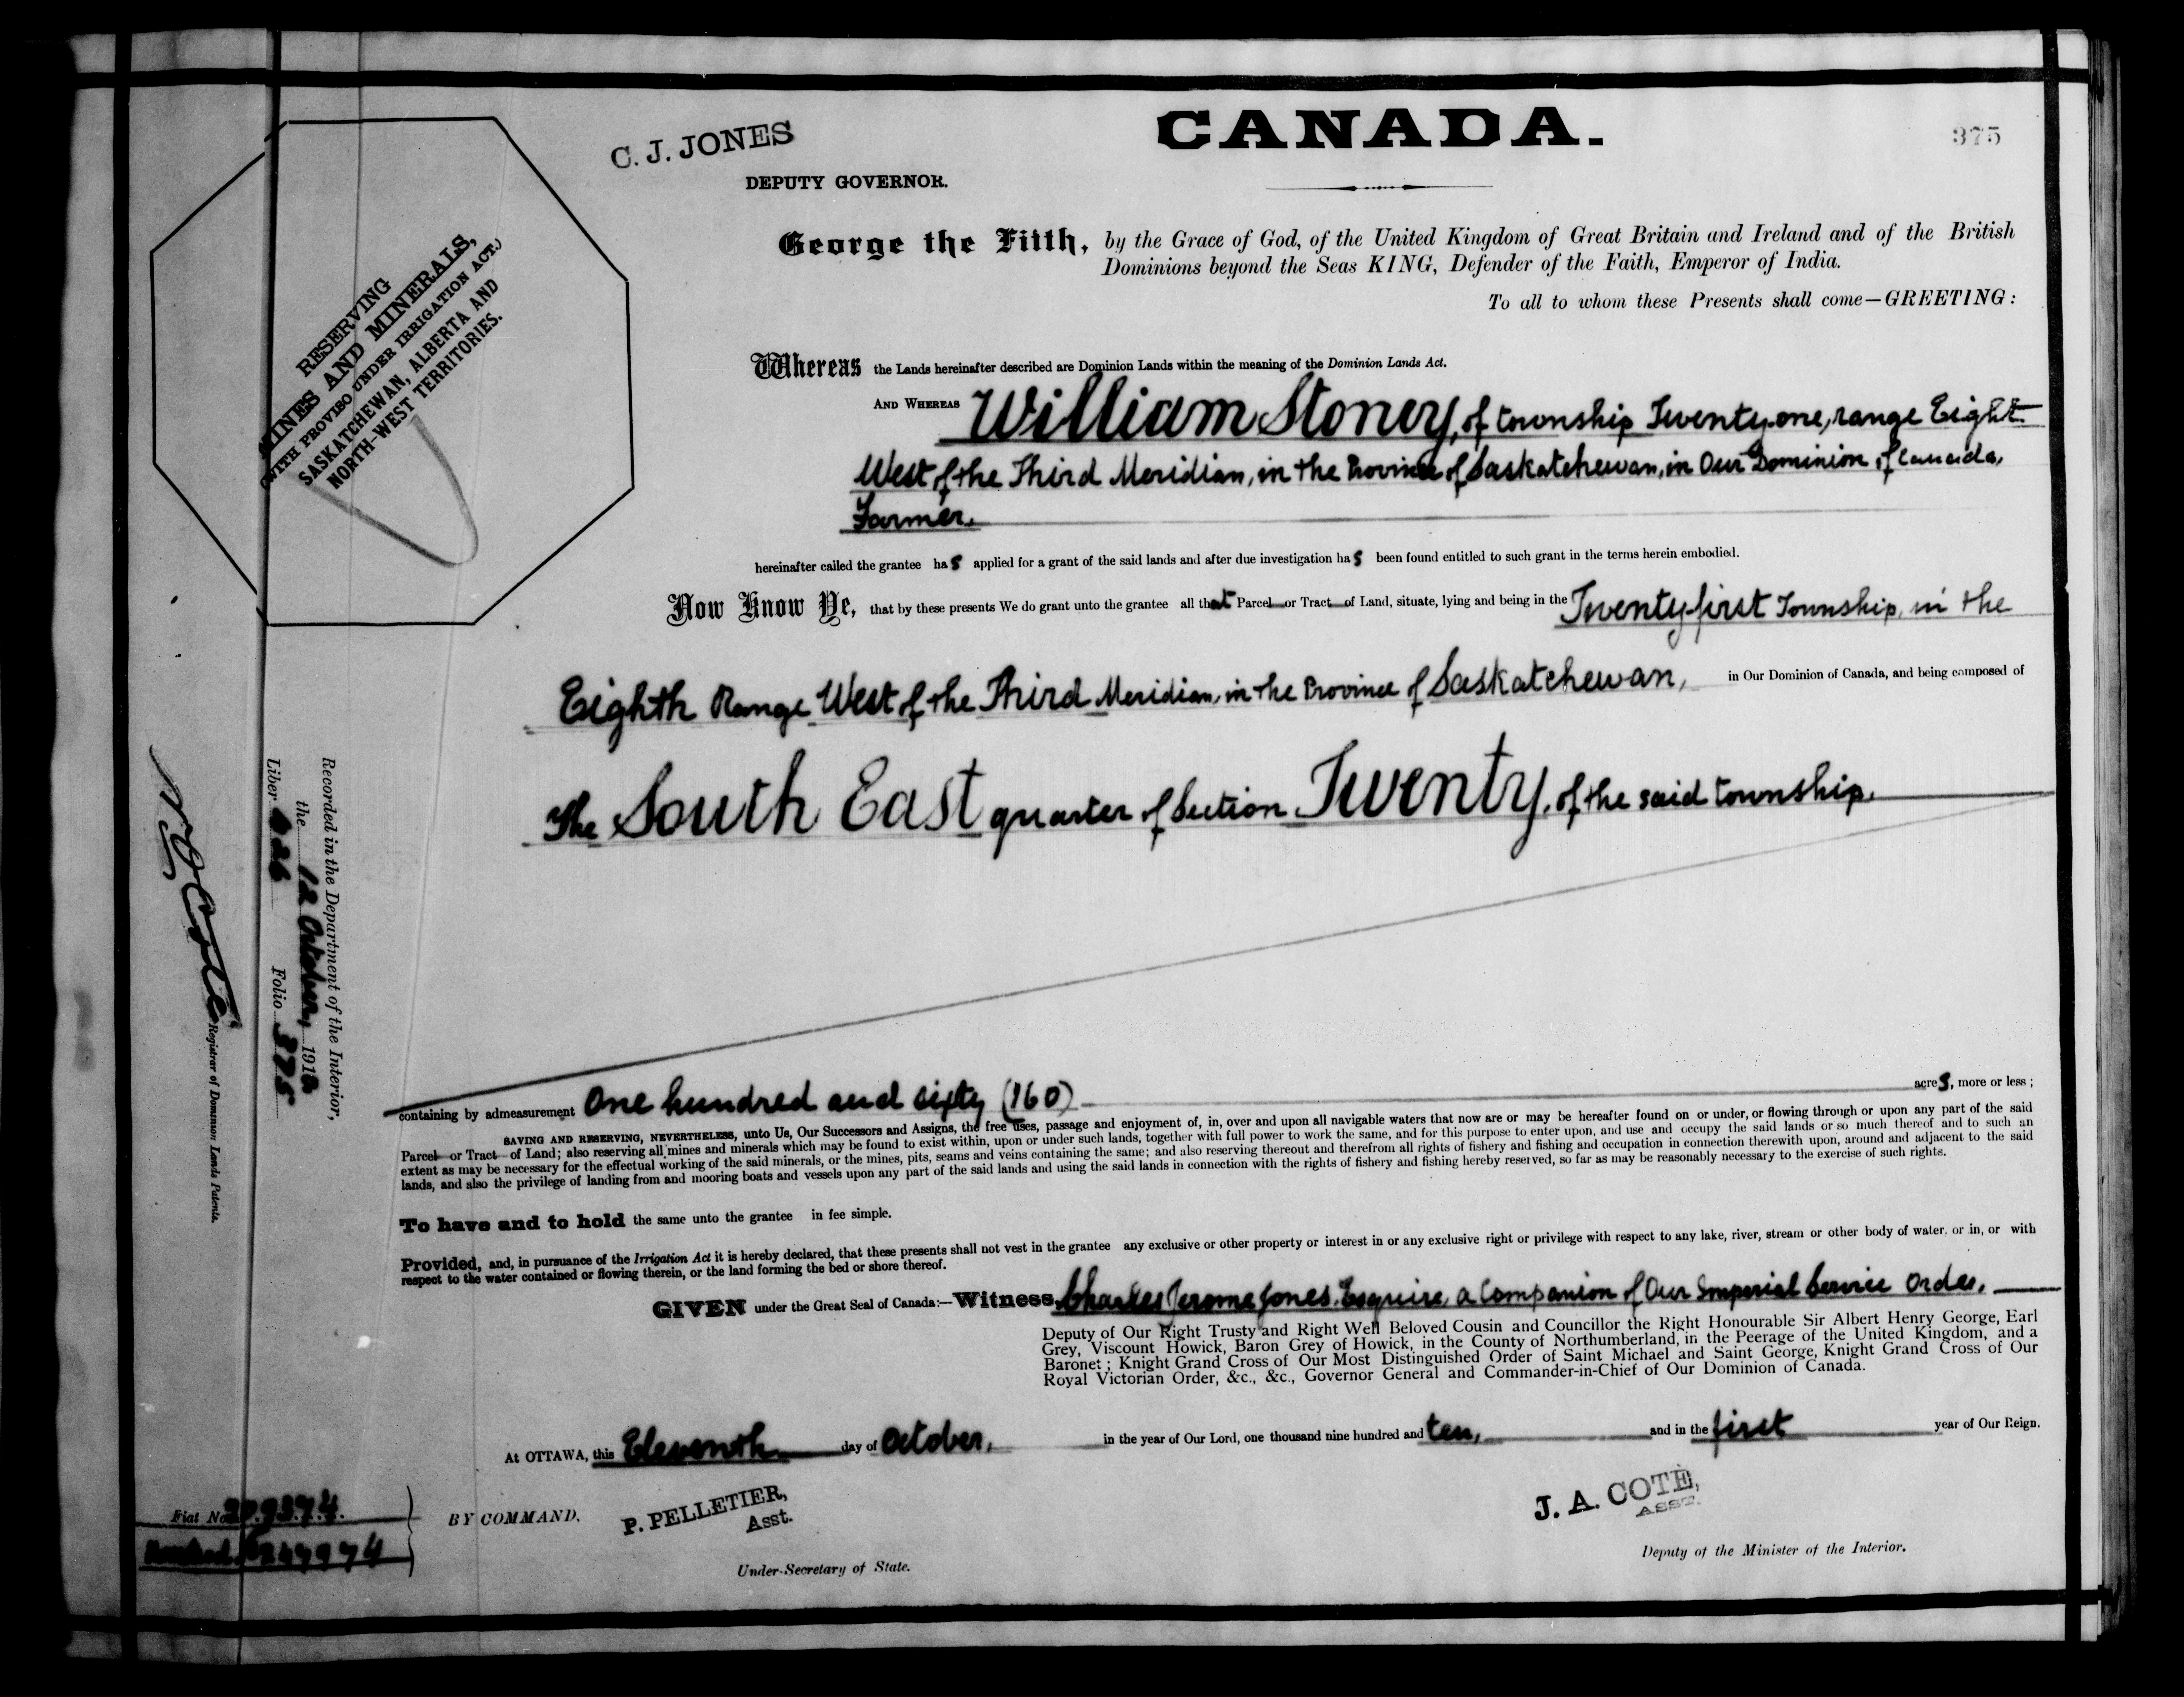 CANADA.
375
C. J. JONES
DEPUTY GOVERNOR.
George the Fifth, by the Grace of God, of the United Kingdom of Great Britain and Ireland and of the British
Dominions beyond the Seas KING, Defender of the Faith, Emperor of India.
To all to whom these Presents shall come—GREETING:
RESERVING
MINES AND MINERALS,
(WITH PROVISO UNDER IRRIGATION ACT.)
SASKATCHEWAN, ALBERTA AND
NORTH-WEST TERRITORIES.
Whereas the Lands hereinafter described are Dominion Lands within the meaning of the Dominion Lands Act.
AND WHEREAS William Stoney, of township Twenty-one, range Eight
West of the Third Meridian, in the Province of Saskatchewan, in Our Dominion of Canada,
Farmer.
hereinafter called the grantee has applied for a grant of the said lands and after due investigation has been found entitled to such grant in the terms herein embodied.
Now Know Ye, that by these presents We do grant unto the grantee all that Parcel or Tract of Land, situate, lying and being in the Twenty-first Township, in the
Eighth Range West of the Third Meridian, in the Province of Saskatchewan, in Our Dominion of Canada, and being composed of
The South East quarter of Section Twenty, of the said township.
containing by admeasurement One hundred and sixty (160) acres, more or less;
SAVING AND RESERVING, NEVERTHELESS, unto Us, Our Successors and Assigns, the free uses, passage and enjoyment of, in, over and upon all navigable waters that now are or may be hereafter found on or under, or flowing through or upon any part of the said
Parcel or Tract of Land; also reserving all mines and minerals which may be found to exist within, upon or under such lands, together with full power to work the same, and for this purpose to enter upon, and use and occupy the said lands or so much thereof and to such an
extent as may be necessary for the effectual working of the said minerals, or the mines, pits, seams and veins containing the same; and also reserving thereout and therefrom all rights of fishery and fishing and occupation in connection therewith upon, around and adjacent to the said
lands, and also the privilege of landing from and mooring boats and vessels upon any part of the said lands and using the said lands in connection with the rights of fishery and fishing hereby reserved, so far as may be reasonably necessary to the exercise of such rights.
To have and to hold the same unto the grantee in fee simple.
Provided, and, in pursuance of the Irrigation Act it is hereby declared, that these presents shall not vest in the grantee any exclusive or other property or interest in or any exclusive right or privilege with respect to any lake, river, stream or other body of water, or in, or with
respect to the water contained or flowing therein, or the land forming the bed or shore thereof.
GIVEN under the Great Seal of Canada:—Witness, Charles Jerome Jones, Esquire, a Companion of Our Imperial Service Order,
Deputy of Our Right Trusty and Right Well Beloved Cousin and Councillor the Right Honourable Sir Albert Henry George, Earl
Grey, Viscount Howick, Baron Grey of Howick, in the County of Northumberland, in the Peerage of the United Kingdom, and a
Baronet; Knight Grand Cross of Our Most Distinguished Order of Saint Michael and Saint George, Knight Grand Cross of Our
Royal Victorian Order, &c., &c., Governor General and Commander-in-Chief of Our Dominion of Canada.
At OTTAWA, this Eleventh day of October, in the year of Our Lord, one thousand nine hundred and ten, and in the first year of Our Reign.
BY COMMAND.
P. PELLETIER,
Asst.
Under-Secretary of State.
J. A. COTÉ,
ASST.
Deputy of the Minister of the Interior.
Recorded in the Department of the Interior,
the 12 October, 1910
Liber Folio 375
Registrar of Dominion Lands Patents.
Fiat No.